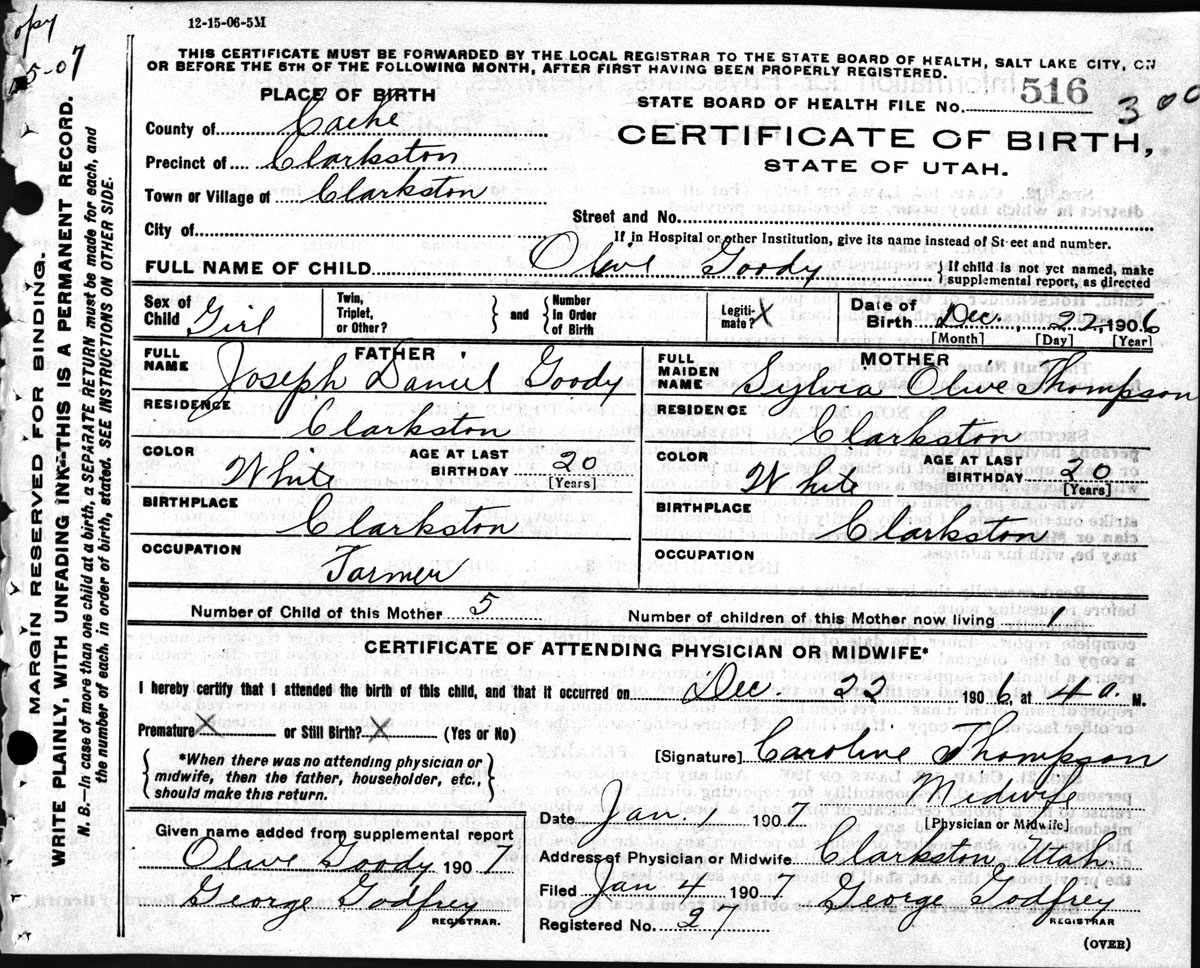 opy
5-07
12-15-06-5M
THIS CERTIFICATE MUST BE FORWARDED BY THE LOCAL REGISTRAR TO THE STATE BOARD OF HEALTH, SALT LAKE CITY, ON
OR BEFORE THE 5TH OF THE FOLLOWING MONTH, AFTER FIRST HAVING BEEN PROPERLY REGISTERED.
PLACE OF BIRTH
County of Cache
Precinct of Clarkston
Town or Village of Clarkston
City of
STATE BOARD OF HEALTH FILE No. 516 300
CERTIFICATE OF BIRTH,
STATE OF UTAH.
Street and No.
If in Hospital or other Institution, give its name instead of Street and number.
FULL NAME OF CHILD Olive Goody { If child is not yet named, make
supplemental report, as directed
Sex of Child Girl Twin, Triplet, or Other? } and { Number In Order of Birth Legitimate? X Date of Birth Dec. 22 1906
[Month] [Day] [Year]
FATHER
FULL NAME Joseph Daniel Goody
RESIDENCE Clarkston
COLOR White AGE AT LAST BIRTHDAY 20
[Years]
BIRTHPLACE Clarkston
OCCUPATION Farmer
MOTHER
FULL MAIDEN NAME Sylvia Olive Thompson
RESIDENCE Clarkston
COLOR White AGE AT LAST BIRTHDAY 20
[Years]
BIRTHPLACE Clarkston
OCCUPATION
Number of Child of this Mother 5 Number of children of this Mother now living 1
CERTIFICATE OF ATTENDING PHYSICIAN OR MIDWIFE*
I hereby certify that I attended the birth of this child, and that it occurred on Dec. 22 1906, at 4 a. M.
Premature X or Still Birth? X (Yes or No)
{ *When there was no attending physician or
midwife, then the father, householder, etc.,
should make this return. }
[Signature] Caroline Thompson
Midwife
Date Jan. 1 1907 [Physician or Midwife]
Given name added from supplemental report
Olive Goody 1907
George Godfrey
REGISTRAR.
Address of Physician or Midwife Clarkston, Utah
Filed Jan 4 1907 George Godfrey
REGISTRAR
Registered No. 27
(OVER)
MARGIN RESERVED FOR BINDING.
WRITE PLAINLY, WITH UNFADING INK--THIS IS A PERMANENT RECORD.
N. B.—In case of more than one child at a birth, a SEPARATE RETURN must be made for each, and
the number of each, in order of birth, stated. SEE INSTRUCTIONS ON OTHER SIDE.